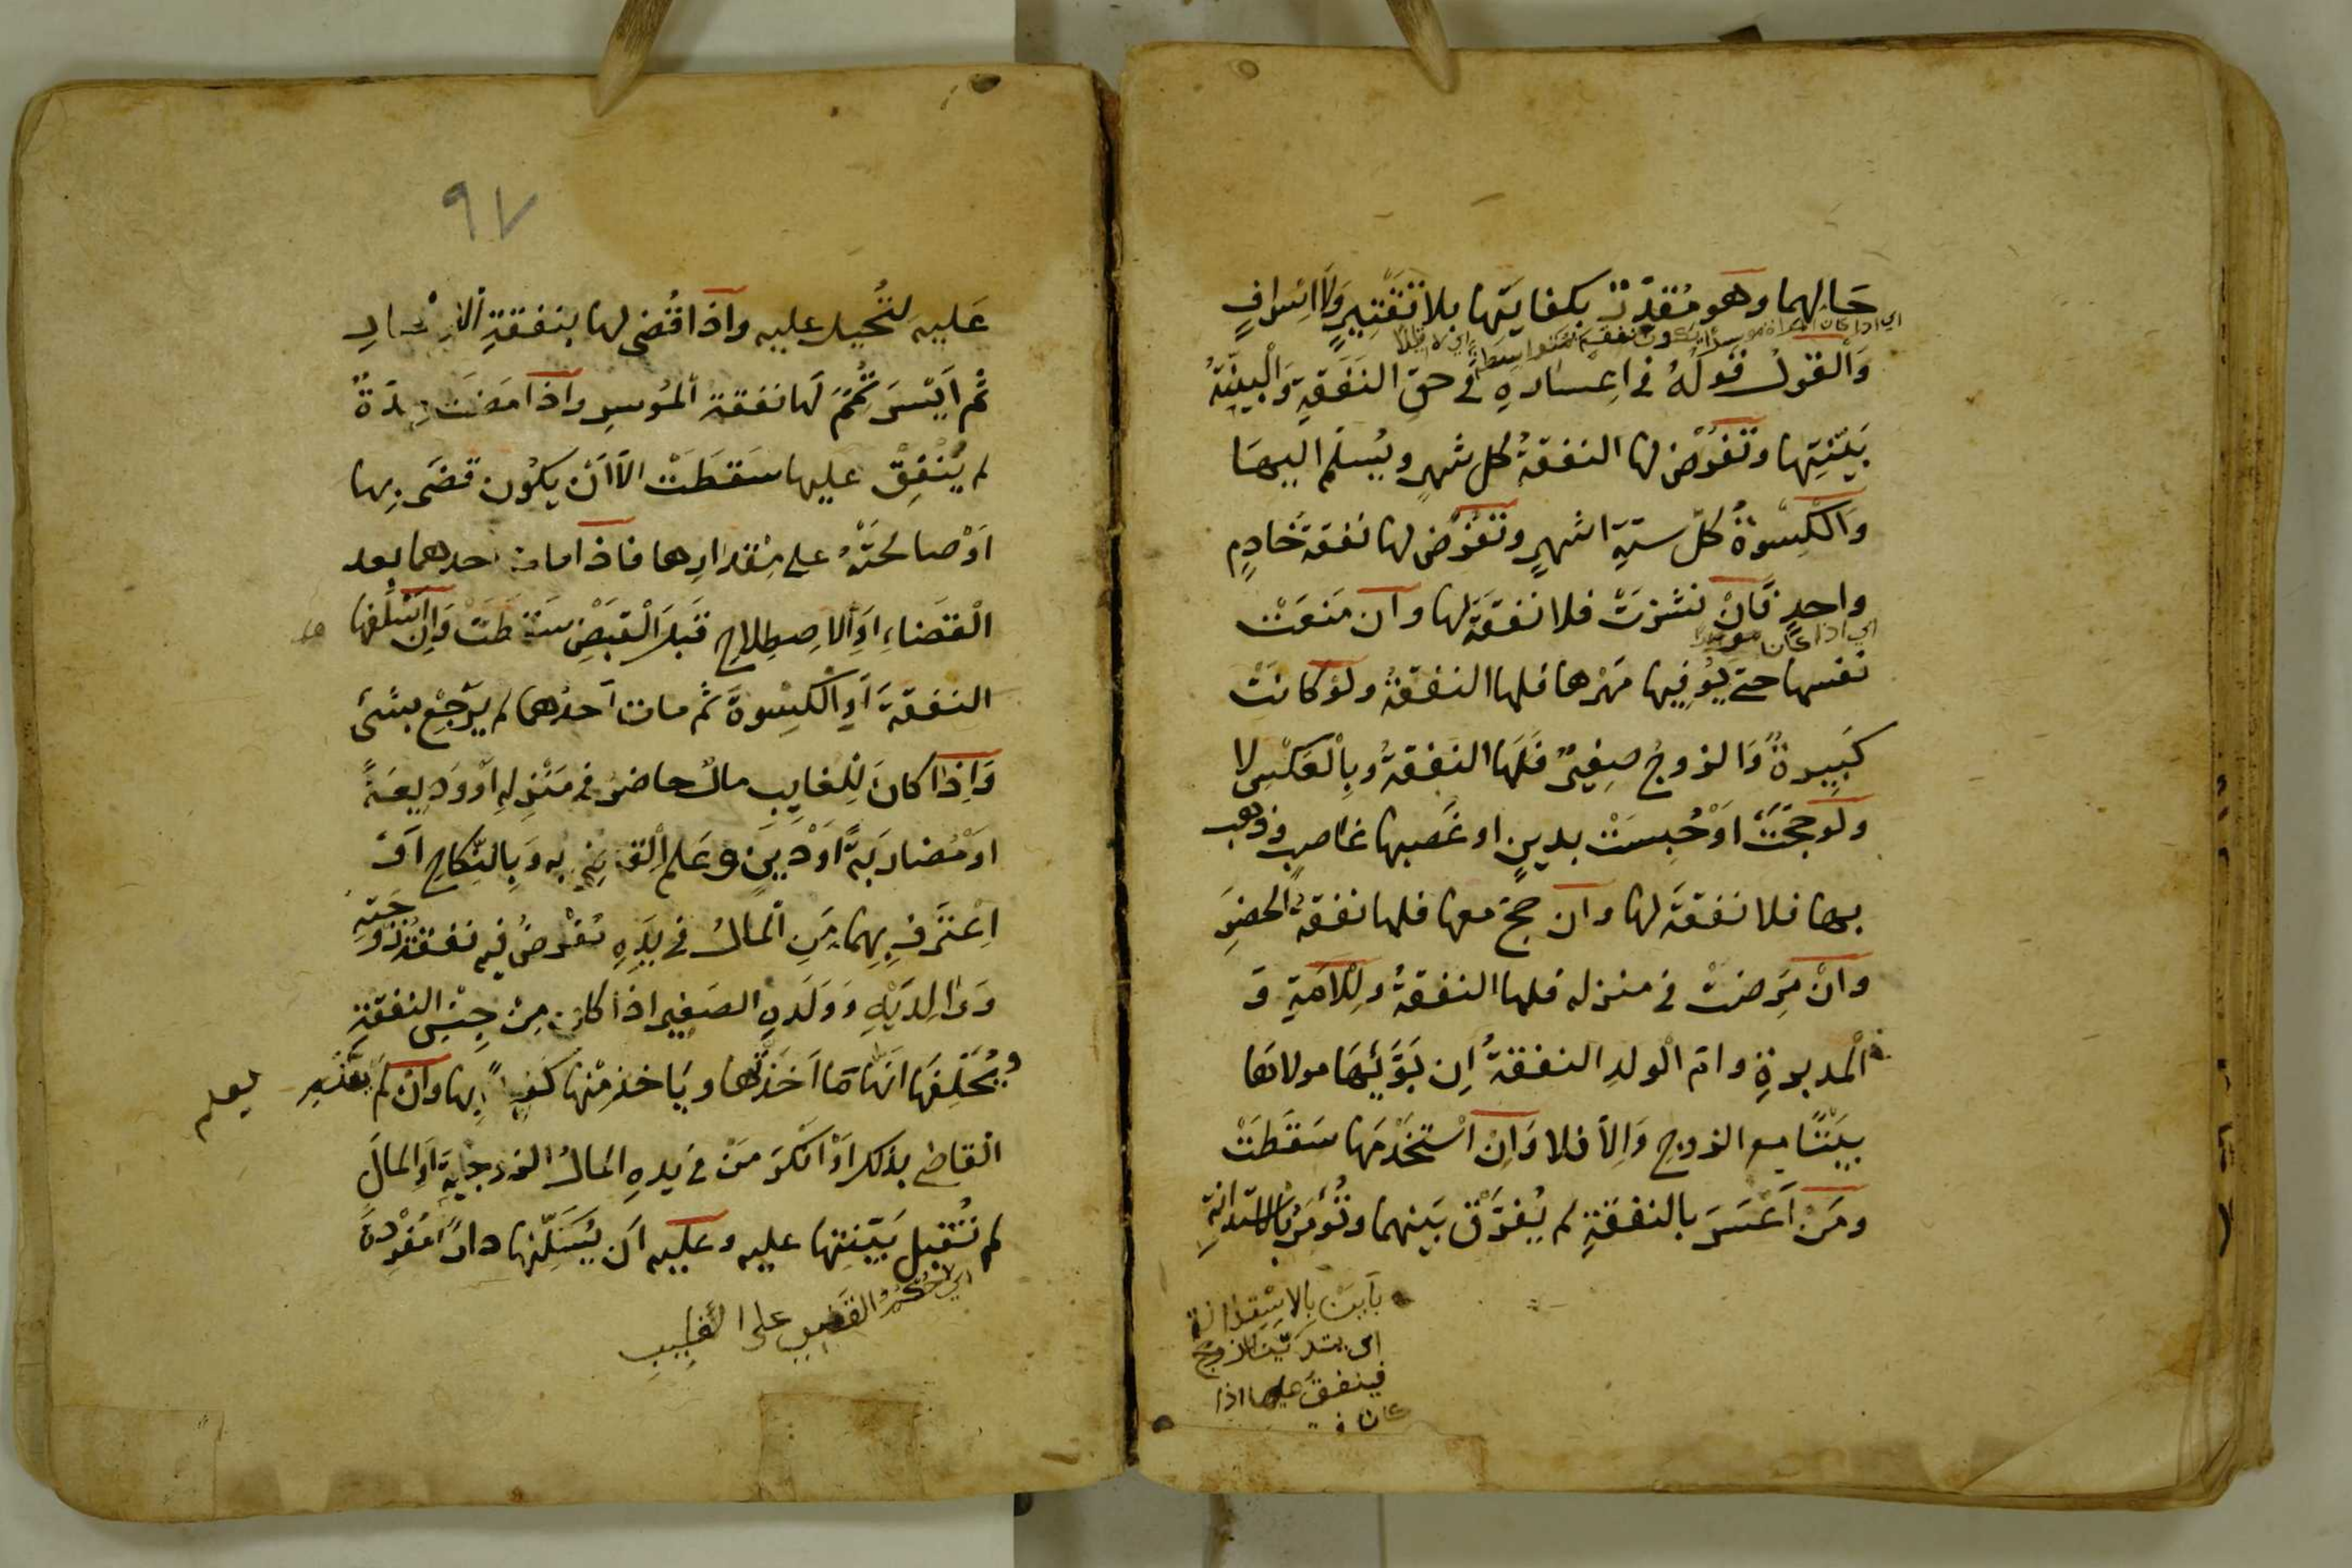 حَالِهما وهو مُقدّرٌ بكفايَتِها بلا تَقْتِيرٍ وَلَا اِسْرافٍ
وَالقولُ قَولُهُ في اِعسارهِ في حقِ النَفَقَةِ وَالْبيِّنَةُ
بَيّنتِها وتُفرَض لها النفقةُ كل شهرٍ ويُسلّم اليها
وَالْكِسْوةُ كلّ ستةِ اشهرٍ وتُفرَض لها نفقة خَادِمٍ
واحدٍ فَانْ نشزتْ فلا نَفقَةَ لها وان مَنعَتْ
اي اذا كان
نفسها حتى يُوَفِيها مَهْرها فلها النفقةُ ولو كانتْ
كَبِيرةً وَالزوجُ صِغيرٌ فَلَها النفقةُ وبِالْعَكْسِ لا
ولو حجّتْ اَوْ حُبِستْ بدينٍ او غَصبها غاصب فذهب
بها فلا نفقةَ لها وان حجّ معها فلها نفقةُ الحضَرِ
وانْ مَرِضتْ في منزله فلها النفقةُ ولِلْاَمَةِ وَ
الْمدبرةِ وام الْولدِ النفقةُ اِن بَوَّئَها مولاها
بيتًا مع الزوجِ وَاِلّا فلا وَاِنْ اسْتخْدَمها سَقَطَتْ
ومَنْ اَعْسَرَ بالنفقةِ لم يُفرَّقْ بَينهما وتُؤمَرُ بالاستدانةِ
فينفق عليها اذا
كان
٩٧
عَليهِ لتُحيل عليهِ واذا قُضى لها بنفقةِ الاِعسارِ
ثم اَيْسَرَ تُمِّمَ لَها نفقة الْمُوسِرِ واذا مَضَت مدّةٌ
لم يُنْفِقْ عليها سَقَطَتْ الّا اَنْ يكُون قضَى بِها
اَوْ صالحتْهُ على مِقدارِها فاذا مات احدهما بعد
الْقَضاءِ اَوِ الاِصطِلاحِ قَبلَ الْقَبضِ سَقطَتْ وَاِن اَسْلَفها
النفقةَ اَوِ الْكِسْوةَ ثم مات اَحدُهما لم يَرْجِعْ بشئ
وَاِذا كانَ لِلْغايِبِ مالٌ حاضرٌ في مَنْزِلِهِ اَوْ وَدِيعةً
اَوْ مُضاربَةً اَوْ دَيْنٍ وعَلم الْقاضي به وَبِالنِّكاحِ اَوْ
اِعْتَرَفَ بِهِما مَنِ الْمالُ في يَدِهِ تُفْرضُ فيه نفقةُ زَوجَتِهِ
وَوالِدَيْهِ وَوَلَدِهِ الصَغيرِ اذا كان مِنْ جِنْسِ النفقةِ
ويُحَلّفها انّها مَا اَخَذَتْها ويَاخذ مِنْها كَفيلًا بِها وانْ لم
يعلم
القاضي بذلك اَوْ اَنْكَرَ مَنْ في يدِهِ المالُ الزوجيةَ اَوِ المالَ
لم تُقبل بَيّنتها عليه وعَليه اَن يُسكِنَها دارًا مُفْرَدةً
على الغايب